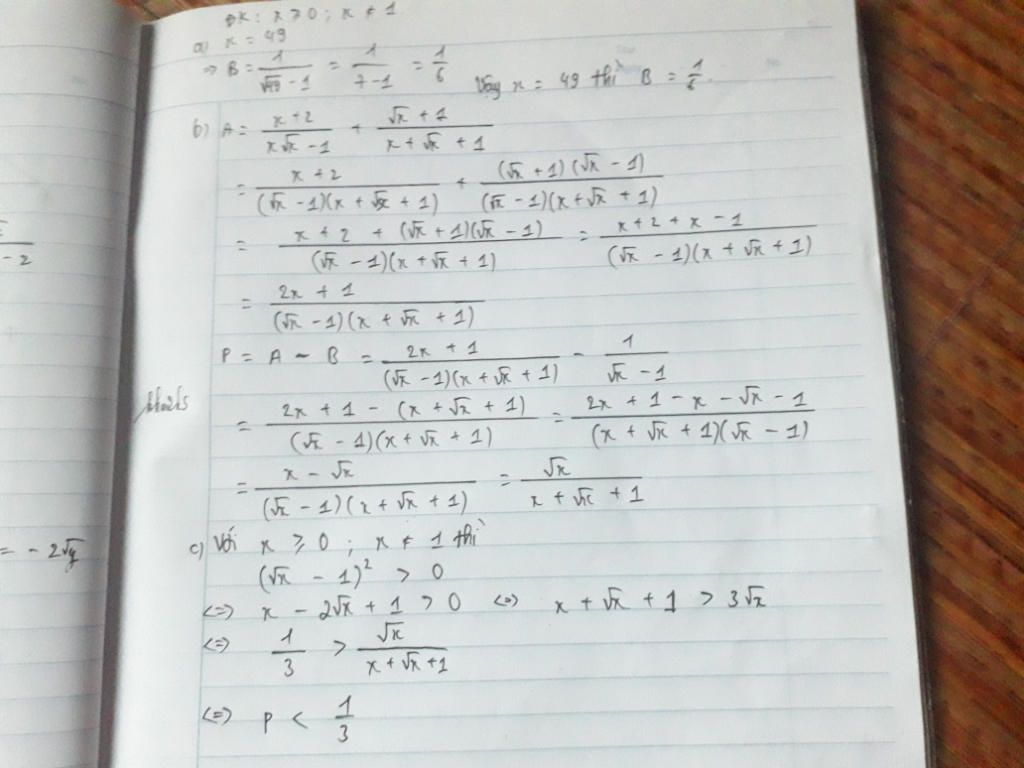 ĐK: x ≥ 0; x ≠ 1
a) x = 49
⇒ B = 1/(√49 - 1) = 1/(7 - 1) = 1/6 Vậy x = 49 thì B = 1/6.
b) A = (x + 2)/(x√x - 1) + (√x + 1)/(x + √x + 1)
= (x + 2)/((√x - 1)(x + √x + 1)) + ((√x + 1)(√x - 1))/((√x - 1)(x + √x + 1))
= (x + 2 + (√x + 1)(√x - 1))/((√x - 1)(x + √x + 1)) = (x + 2 + x - 1)/((√x - 1)(x + √x + 1))
= (2x + 1)/((√x - 1)(x + √x + 1))
P = A - B = (2x + 1)/((√x - 1)(x + √x + 1)) - 1/(√x - 1)
= (2x + 1 - (x + √x + 1))/((√x - 1)(x + √x + 1)) = (2x + 1 - x - √x - 1)/((x + √x + 1)(√x - 1))
= (x - √x)/((√x - 1)(x + √x + 1)) = √x/(x + √x + 1)
c) Với x ≥ 0; x ≠ 1 thì
(√x - 1)² > 0
<=> x - 2√x + 1 > 0 <=> x + √x + 1 > 3√x
<=> 1/3 > √x/(x + √x + 1)
<=> P < 1/3
- 2
= - 2√y